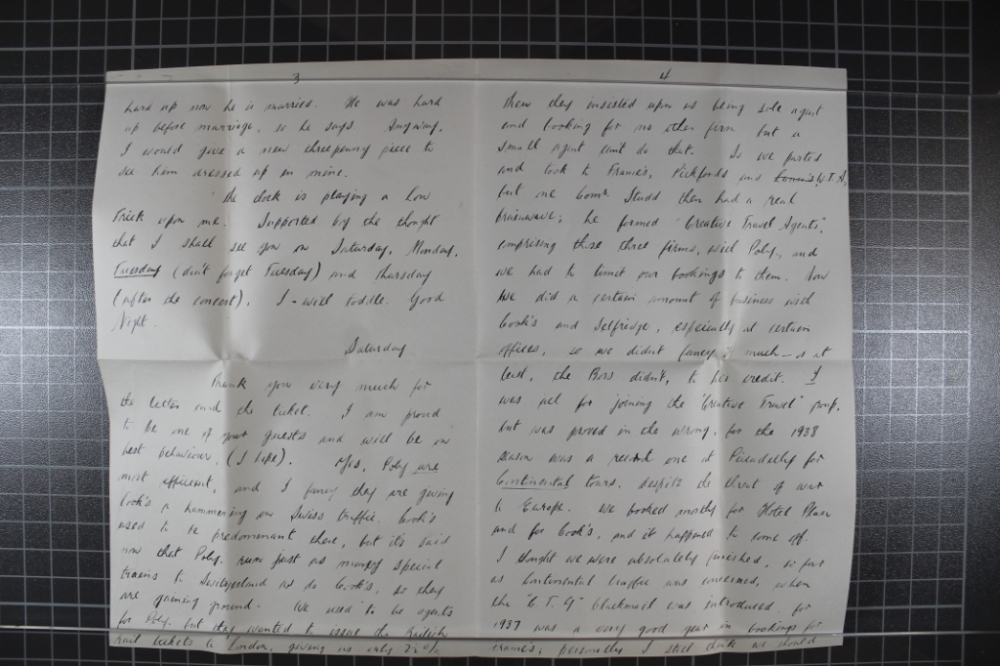 3
hard up now he is married. He was hard
up before marriage, so he says. Anyway,
I would give a new threepenny piece to
see him dressed up in mine.
The clock is playing a low
trick upon me. Supported by the thought
that I shall see you on Saturday, Monday,
Tuesday (don't forget Tuesday) and Thursday
(after the concert), I will toddle. Good
Night.
Saturday
Thank you very much for
the letter and the ticket. I am proud
to be one of your guests and will be on
best behaviour, (I hope). Yes, Poly are
most efficient, and I fancy they are giving
Cook's a hammering on Swiss traffic. Cook's
used to be predominant there, but it's said
now that Poly. runs just as many special
trains to Switzerland as do Cook's, so they
are gaining ground. We used to be agents
for Poly. but they wanted to issue the
rail tickets to London, giving us only 2½%
4
Then they insisted upon us being sole agent
and booking for no other firm but a
small agent can't do that. So we parted
and took to Frames, Pickfords and W.T.A,
but one bomb. Studd then had a real
brainwave; he formed "Creative Travel Agents",
comprising those three firms, with Poly., and
we had to limit our bookings to them. Now
we did a certain amount of business with
Cook's and Selfridge, especially at certain
offices, so we didn't fancy it much — or at
least, the Boss didn't, to his credit. I
was all for joining the "Creative Travel" group,
but was proved in the wrong, for the 1938
season was a record one at Piccadilly for
Continental tours, despite the threat of war
in Europe. We booked mostly for Hotel Plan
and for Cook's, and it happened to come off.
I thought we were absolutely finished, so far
as Continental traffic was concerned, when
the "C.T.A" blackmail was introduced, for
1937 was a very good year in bookings for
Frames; personally I still think we should